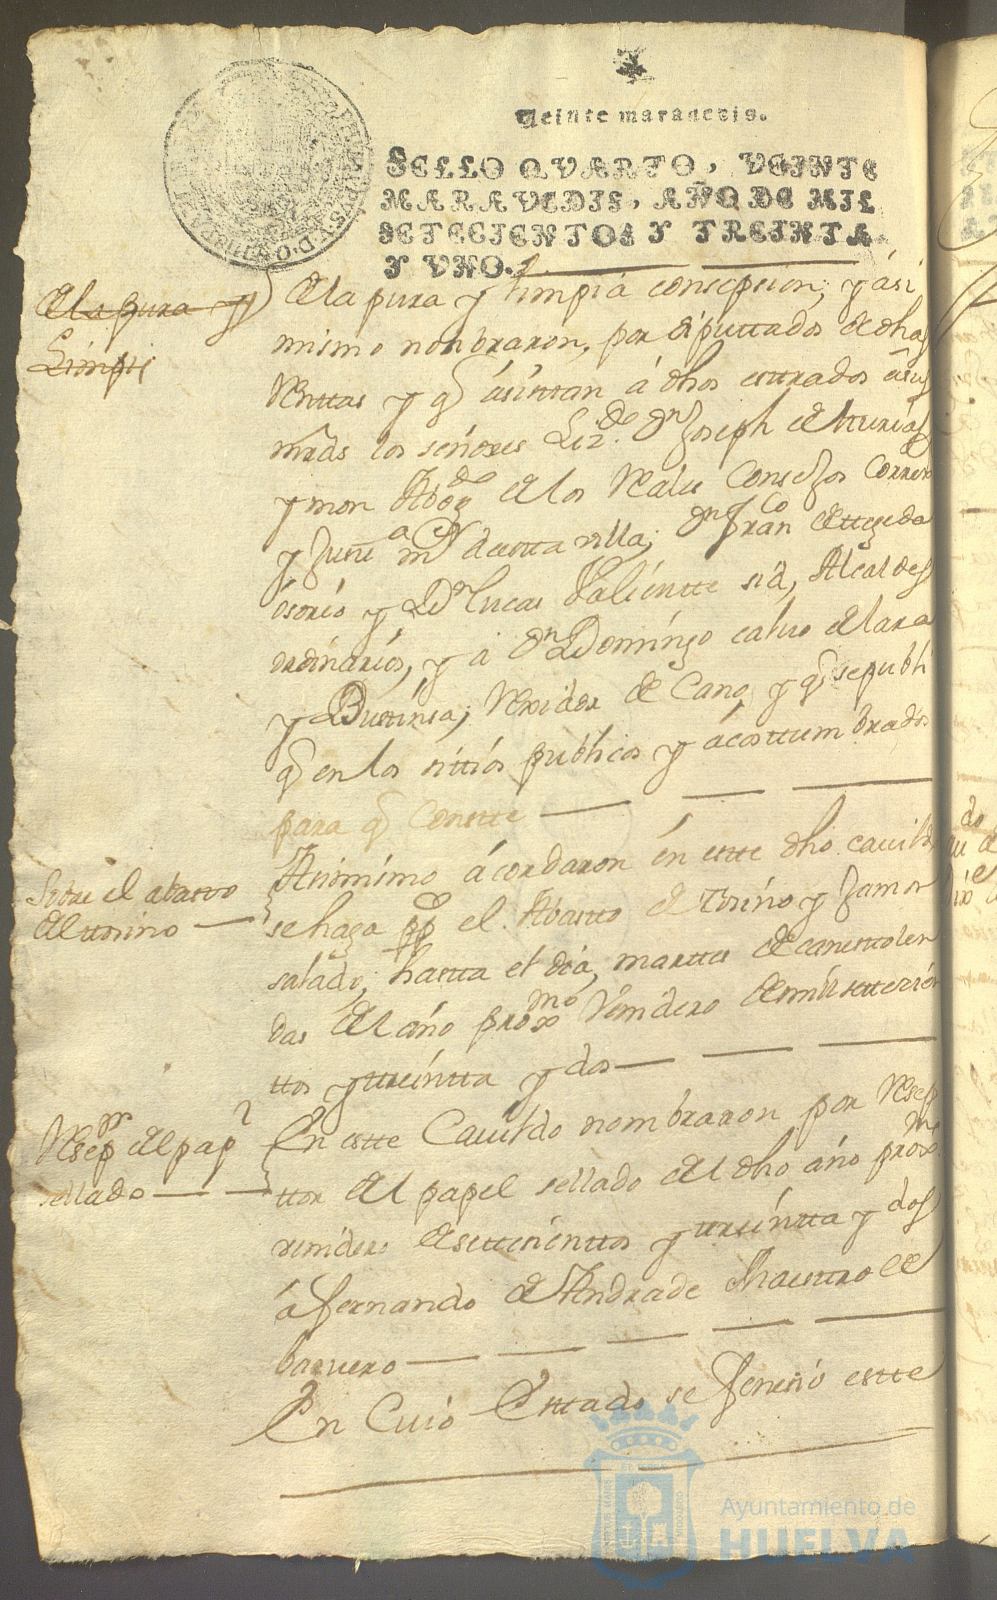 Veinte maravedis.
SELLO QVARTO, VEINTE
MARAVEDIS, AÑO DE MIL
SETECIENTOS Y TREINTA
Y VNO.
de la pura y
Limpi
de la pura y limpia consepsion; y ási
mismo nonbraron, por diputtados de dhas
Renttas y q ásisttan á dhos esttrados
los señores Lizdo Dn Joseph de Atturias
y mon Abogdo de los Reales Consejos Correxor
y Justta mor de estta villa; Dn Franco de ttexeda
ósorio y Dn Lucas Valientte sid, Alcaldes
ordinarios, y á Dn Domingo calvo de lara
y Busttinsa; Rexidor de Cano, y q se publi
q en los sittiós publicos y ácosttumbrados
para q Constte
Sobre el abastto
del ttosino
Asimismo ácordaron én estte dho cavildo
se haga pp el Abastto de Tosino y Jamon
salado, hastta el dia, marttes de carnesttolen
das del año proxmo Venidero de mill settesien
ttos y ttreintta y dos
Resepr del papl
sellado
En estte Cavildo nombraron por Resep
ttor del papel sellado del dho áño proxmo
venidero de settesienttos y ttreintta y dos
á fernando de Andrade Maesttro de
barvero
En Cuió Esttado se fenesió estte
Ayuntamiento de
HUELVA